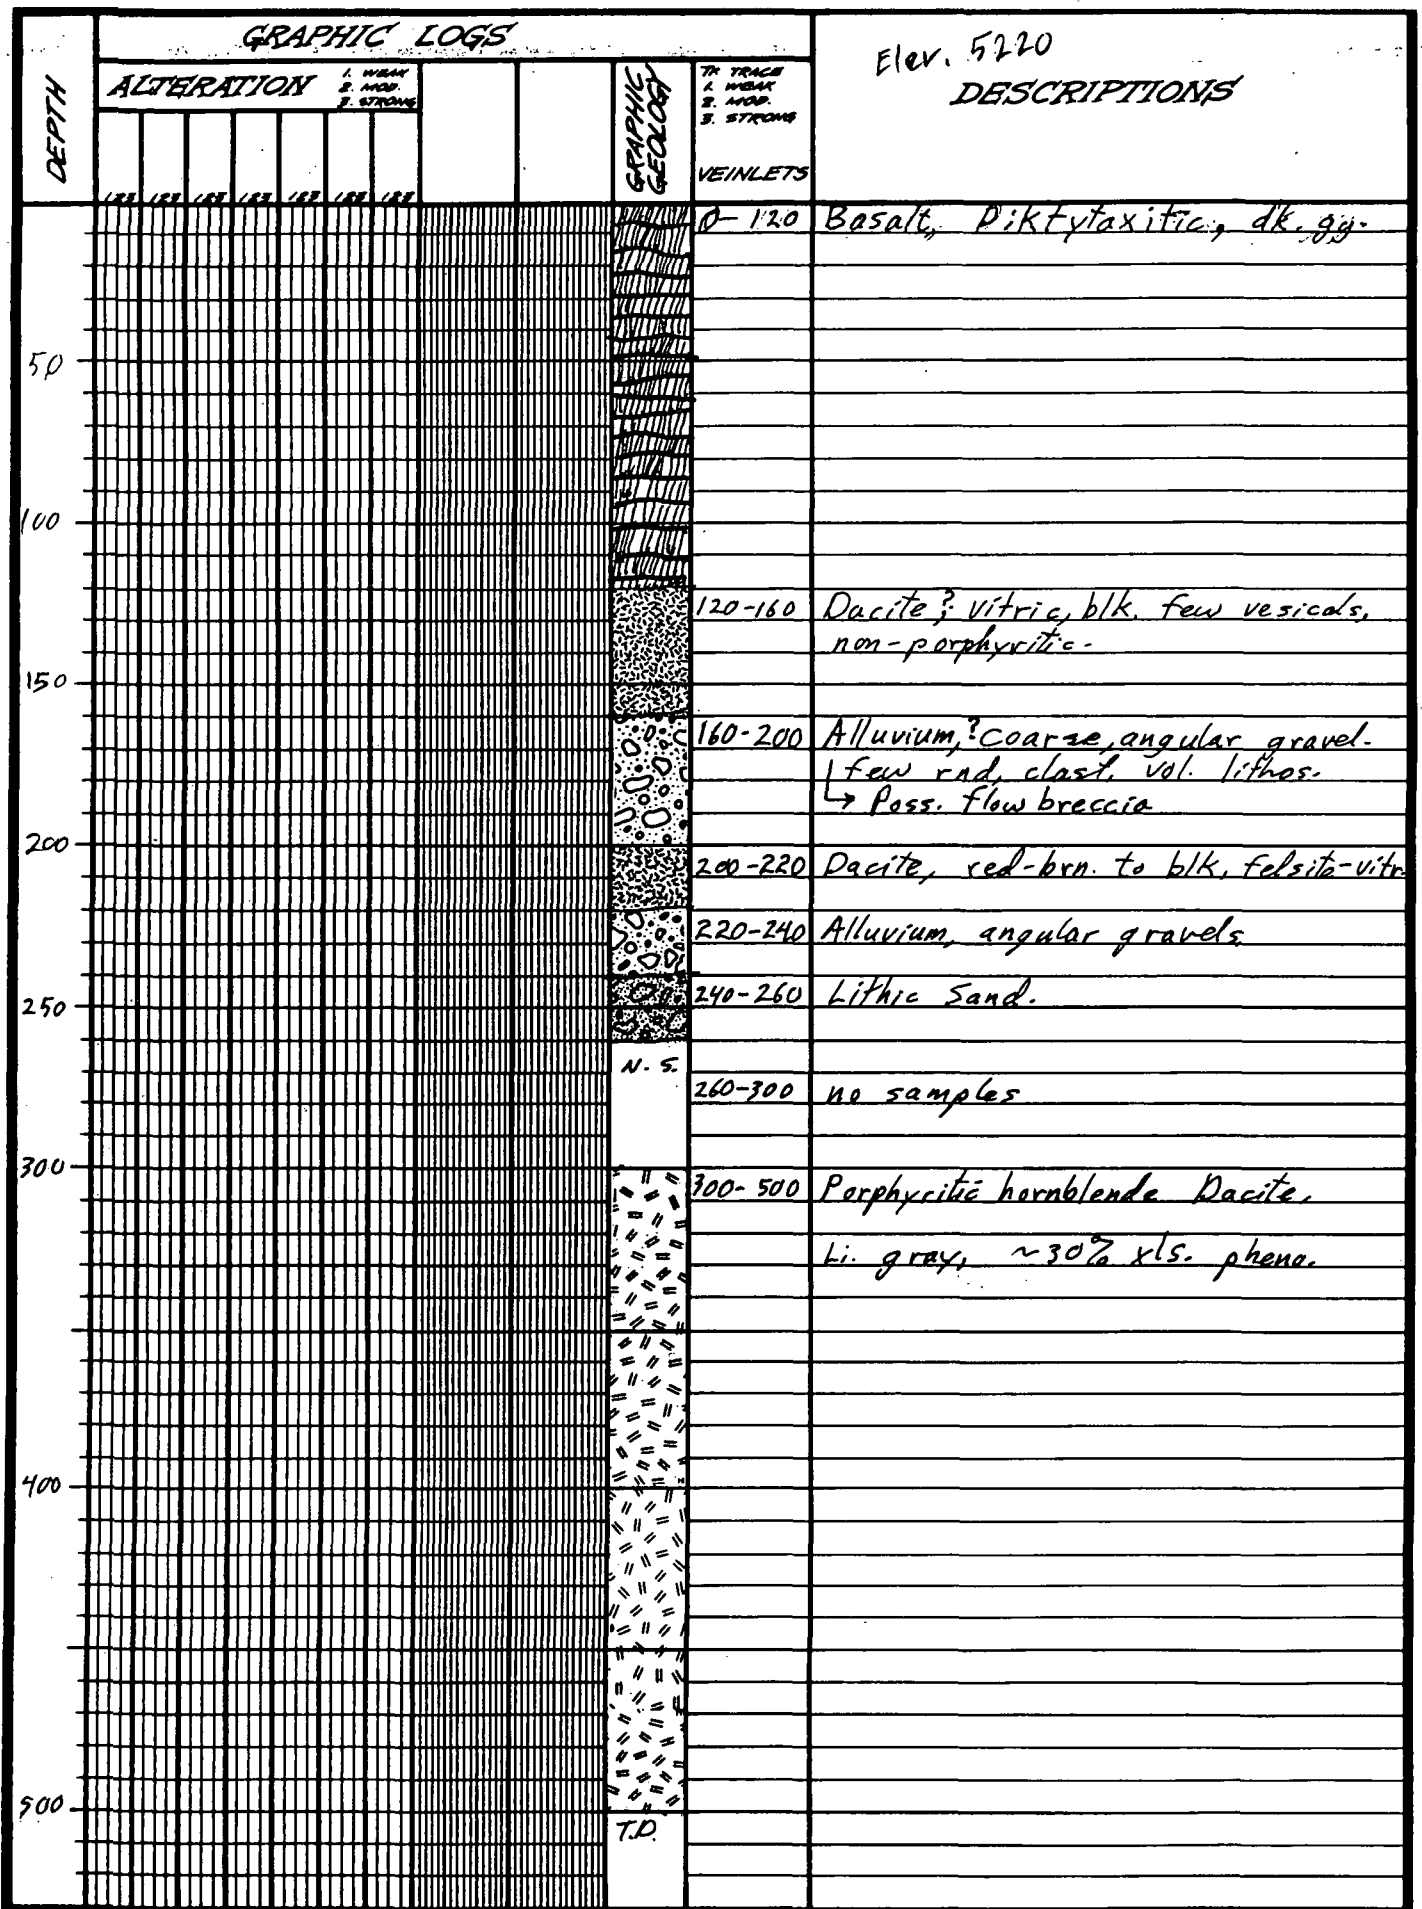 GRAPHIC LOGS
Elev. 5220
DESCRIPTIONS
DEPTH
ALTERATION
1. WEAK
2. MOD.
3. STRONG
GRAPHIC
GEOLOGY
TR TRACE
1. WEAK
2. MOD.
3. STRONG
VEINLETS
123 123 123 123 123 123 123
0-120 Basalt, Diktytaxitic, dk. gy.
50
100
120-160 Dacite?; vitric, blk. few vesicals,
non-porphyritic.
150
160-200 Alluvium,? coarse, angular gravel.
few rnd, clast, vol. lithos.
↳ Poss. flow breccia
200
200-220 Dacite, red-brn. to blk, felsite-vitr.
220-240 Alluvium, angular gravels
240-260 Lithic Sand.
250
N.S.
260-300 no samples
300
300-500 Porphyritic hornblende Dacite,
Li. gray, ~30% xls. pheno.
400
500
T.D.